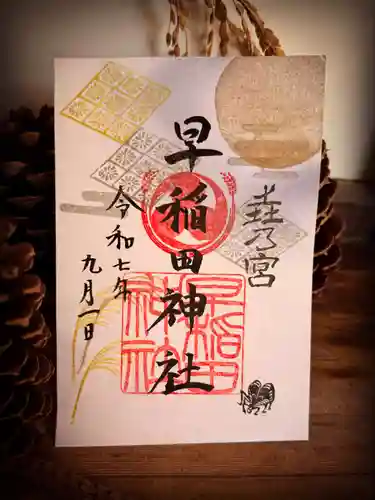 乃宮
早稲田神社
令和七年
九月一日
早稲田
神社